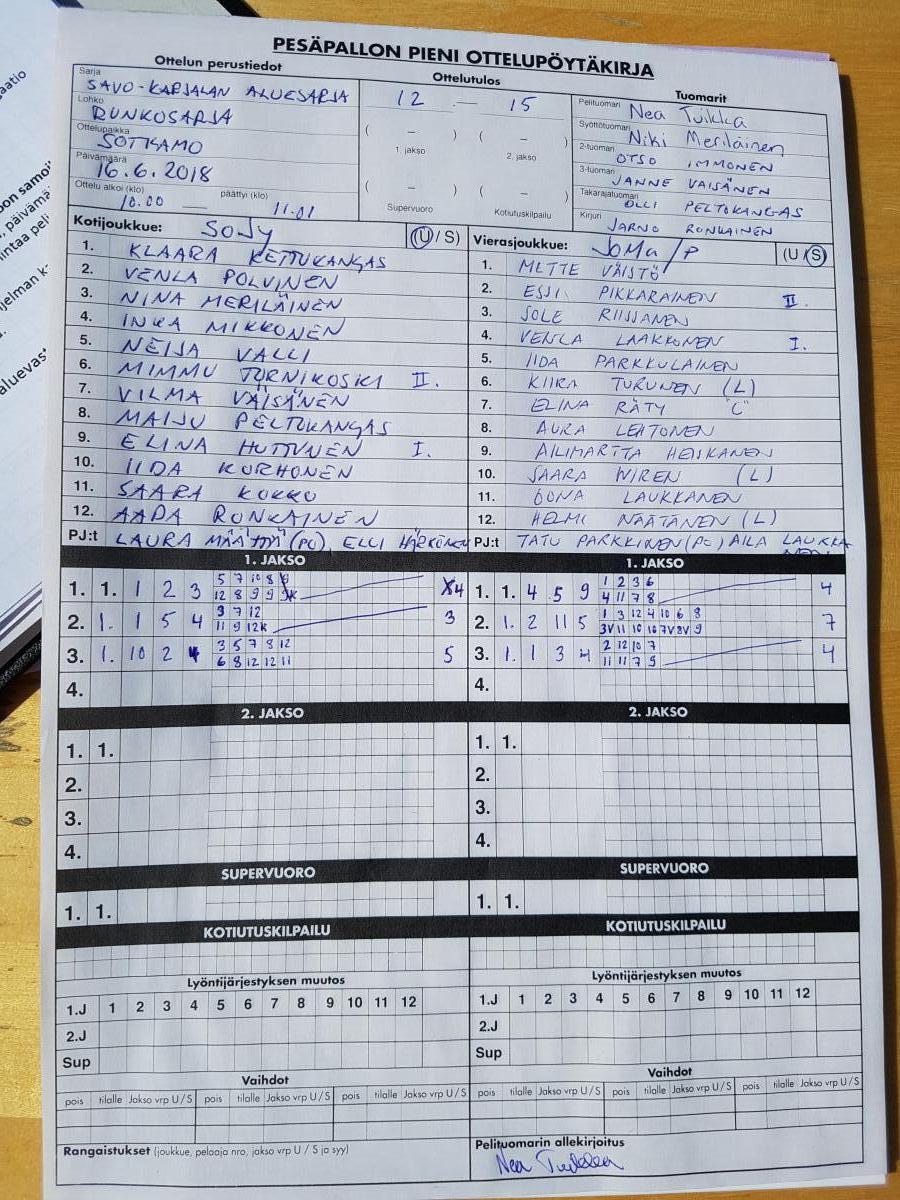 PESÄPALLON PIENI OTTELUPÖYTÄKIRJA
Ottelun perustiedot
Sarja
SAVO-KARJALAN ALUESARJA
Lohko
RUNKOSARJA
Ottelupaikka
SOTKAMO
Päivämäärä
16.6.2018
Ottelu alkoi (klo) päättyi (klo)
10.00 11.01
Ottelutulos
12 — 15
( – ) ( – )
1. jakso 2. jakso
( – ) ( – )
Supervuoro Kotiutuskilpailu
Tuomarit
Pelituomari Nea Tuikka
Syöttötuomari Niki Meriläinen
2-tuomari OTSO IMMONEN
3-tuomari JANNE VAISÄNEN
Takarajatuomari OLLI PELTOKANGAS
Kirjuri JARNO RONKAINEN
Kotijoukkue: SoJy (U / S)
1. KLAARA KETTUKANGAS
2. VENLA POLVINEN
3. NINA MERILÄINEN
4. INKA MIKKONEN
5. NEIJA VALLI
6. MIMMU TORNIKOSKI II.
7. VILMA VÄISÄNEN
8. MAIJU PELTOKANGAS
9. ELINA HUTTUNEN I.
10. IIDA KORHONEN
11. SAARA KOKKO
12. AADA RONKAINEN
PJ:t LAURA MÄÄTTÄ (PO), ELLI HÄRKÖNEN
Vierasjoukkue: JoMa/P (U / S)
1. METTE VÄISTÖ
2. ESSI PIKKARAINEN II.
3. SOLE RIISSANEN
4. VENLA LAAKKONEN I.
5. IIDA PARKKULAINEN
6. KIIRA TURUNEN (L)
7. ELINA RÄTY "C"
8. AURA LEHTONEN
9. AILIMARTTA HEISKANEN
10. SAARA WIREN (L)
11. OONA LAUKKANEN
12. HELMI NÄÄTÄNEN (L)
PJ:t TATU PARKKINEN (PO) AILA LAUKKA
NEN
1. JAKSO
1. 1. 1 2 3 5 7 10 8
12 8 9 9 4
2. 1. 1 5 4 3 7 12 3
11 9 12K
3. 1. 10 2 4 3 5 7 8 12 5
6 8 12 12 11
4.
2. JAKSO
1. 1.
2.
3.
4.
SUPERVUORO
1. 1.
KOTIUTUSKILPAILU
Lyöntijärjestyksen muutos
1.J 1 2 3 4 5 6 7 8 9 10 11 12
2.J
Sup
Vaihdot
pois tilalle Jakso vrp U / S pois tilalle Jakso vrp U / S pois tilalle Jakso vrp U / S
Rangaistukset (joukkue, pelaaja nro, jakso vrp U / S ja syy)
1. JAKSO
1. 1. 4 5 9 1 2 3 6 4
4 11 7 8
2. 1. 2 11 5 1 3 12 4 10 6 8 7
3V 11 10 10 7V 8V 9
3. 1. 1 3 4 2 12 10 7 4
11 11 7 9
4.
2. JAKSO
1. 1.
2.
3.
4.
SUPERVUORO
1. 1.
KOTIUTUSKILPAILU
Lyöntijärjestyksen muutos
1.J 1 2 3 4 5 6 7 8 9 10 11 12
2.J
Sup
Vaihdot
pois tilalle Jakso vrp U / S pois tilalle Jakso vrp U / S pois tilalle Jakso vrp U / S
Pelituomarin allekirjoitus
Nea Tuikka